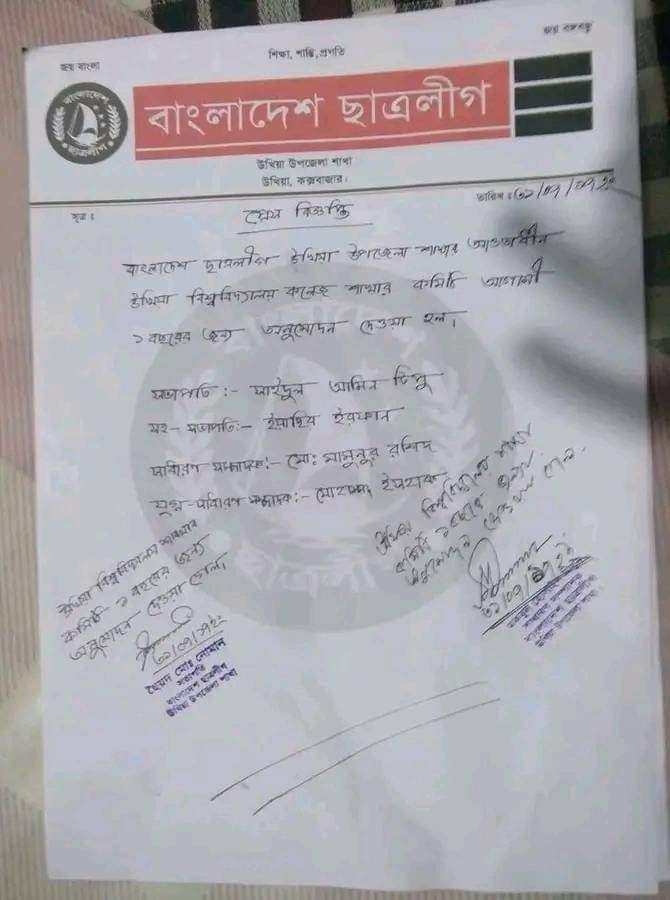 জয় বাংলা
শিক্ষা, শান্তি, প্রগতি
জয় বঙ্গবন্ধু
বাংলাদেশ
ছাত্রলীগ
বাংলাদেশ ছাত্রলীগ
উখিয়া উপজেলা শাখা
উখিয়া, কক্সবাজার।
সূত্র :
তারিখ :
প্রেস বিজ্ঞপ্তি
বাংলাদেশ ছাত্রলীগ উখিয়া উপজেলা শাখার আওতাধীন
উখিয়া বিশ্ববিদ্যালয় কলেজ শাখার কমিটি আগামী
১ বছরের জন্য অনুমোদন দেওয়া হল।
সভাপতি :- সাইদুল আমিন টিপু
সহ- সভাপতি:- ইরফান
সাধারণ সম্পাদক:- মো: মামুনুর রশিদ
যুগ্ম-সাধারণ সম্পাদক:- মোহাম্মদ ইসহাক
উখিয়া বিশ্ববিদ্যালয় শাখার
কমিটি ১ বছরের জন্য
অনুমোদন দেওয়া গেল।
সভাপতি
বাংলাদেশ ছাত্রলীগ
উখিয়া উপজেলা শাখা
উখিয়া বিশ্ববিদ্যালয় শাখার
কমিটি ১ বছরের জন্য
অনুমোদন দেওয়া গেল